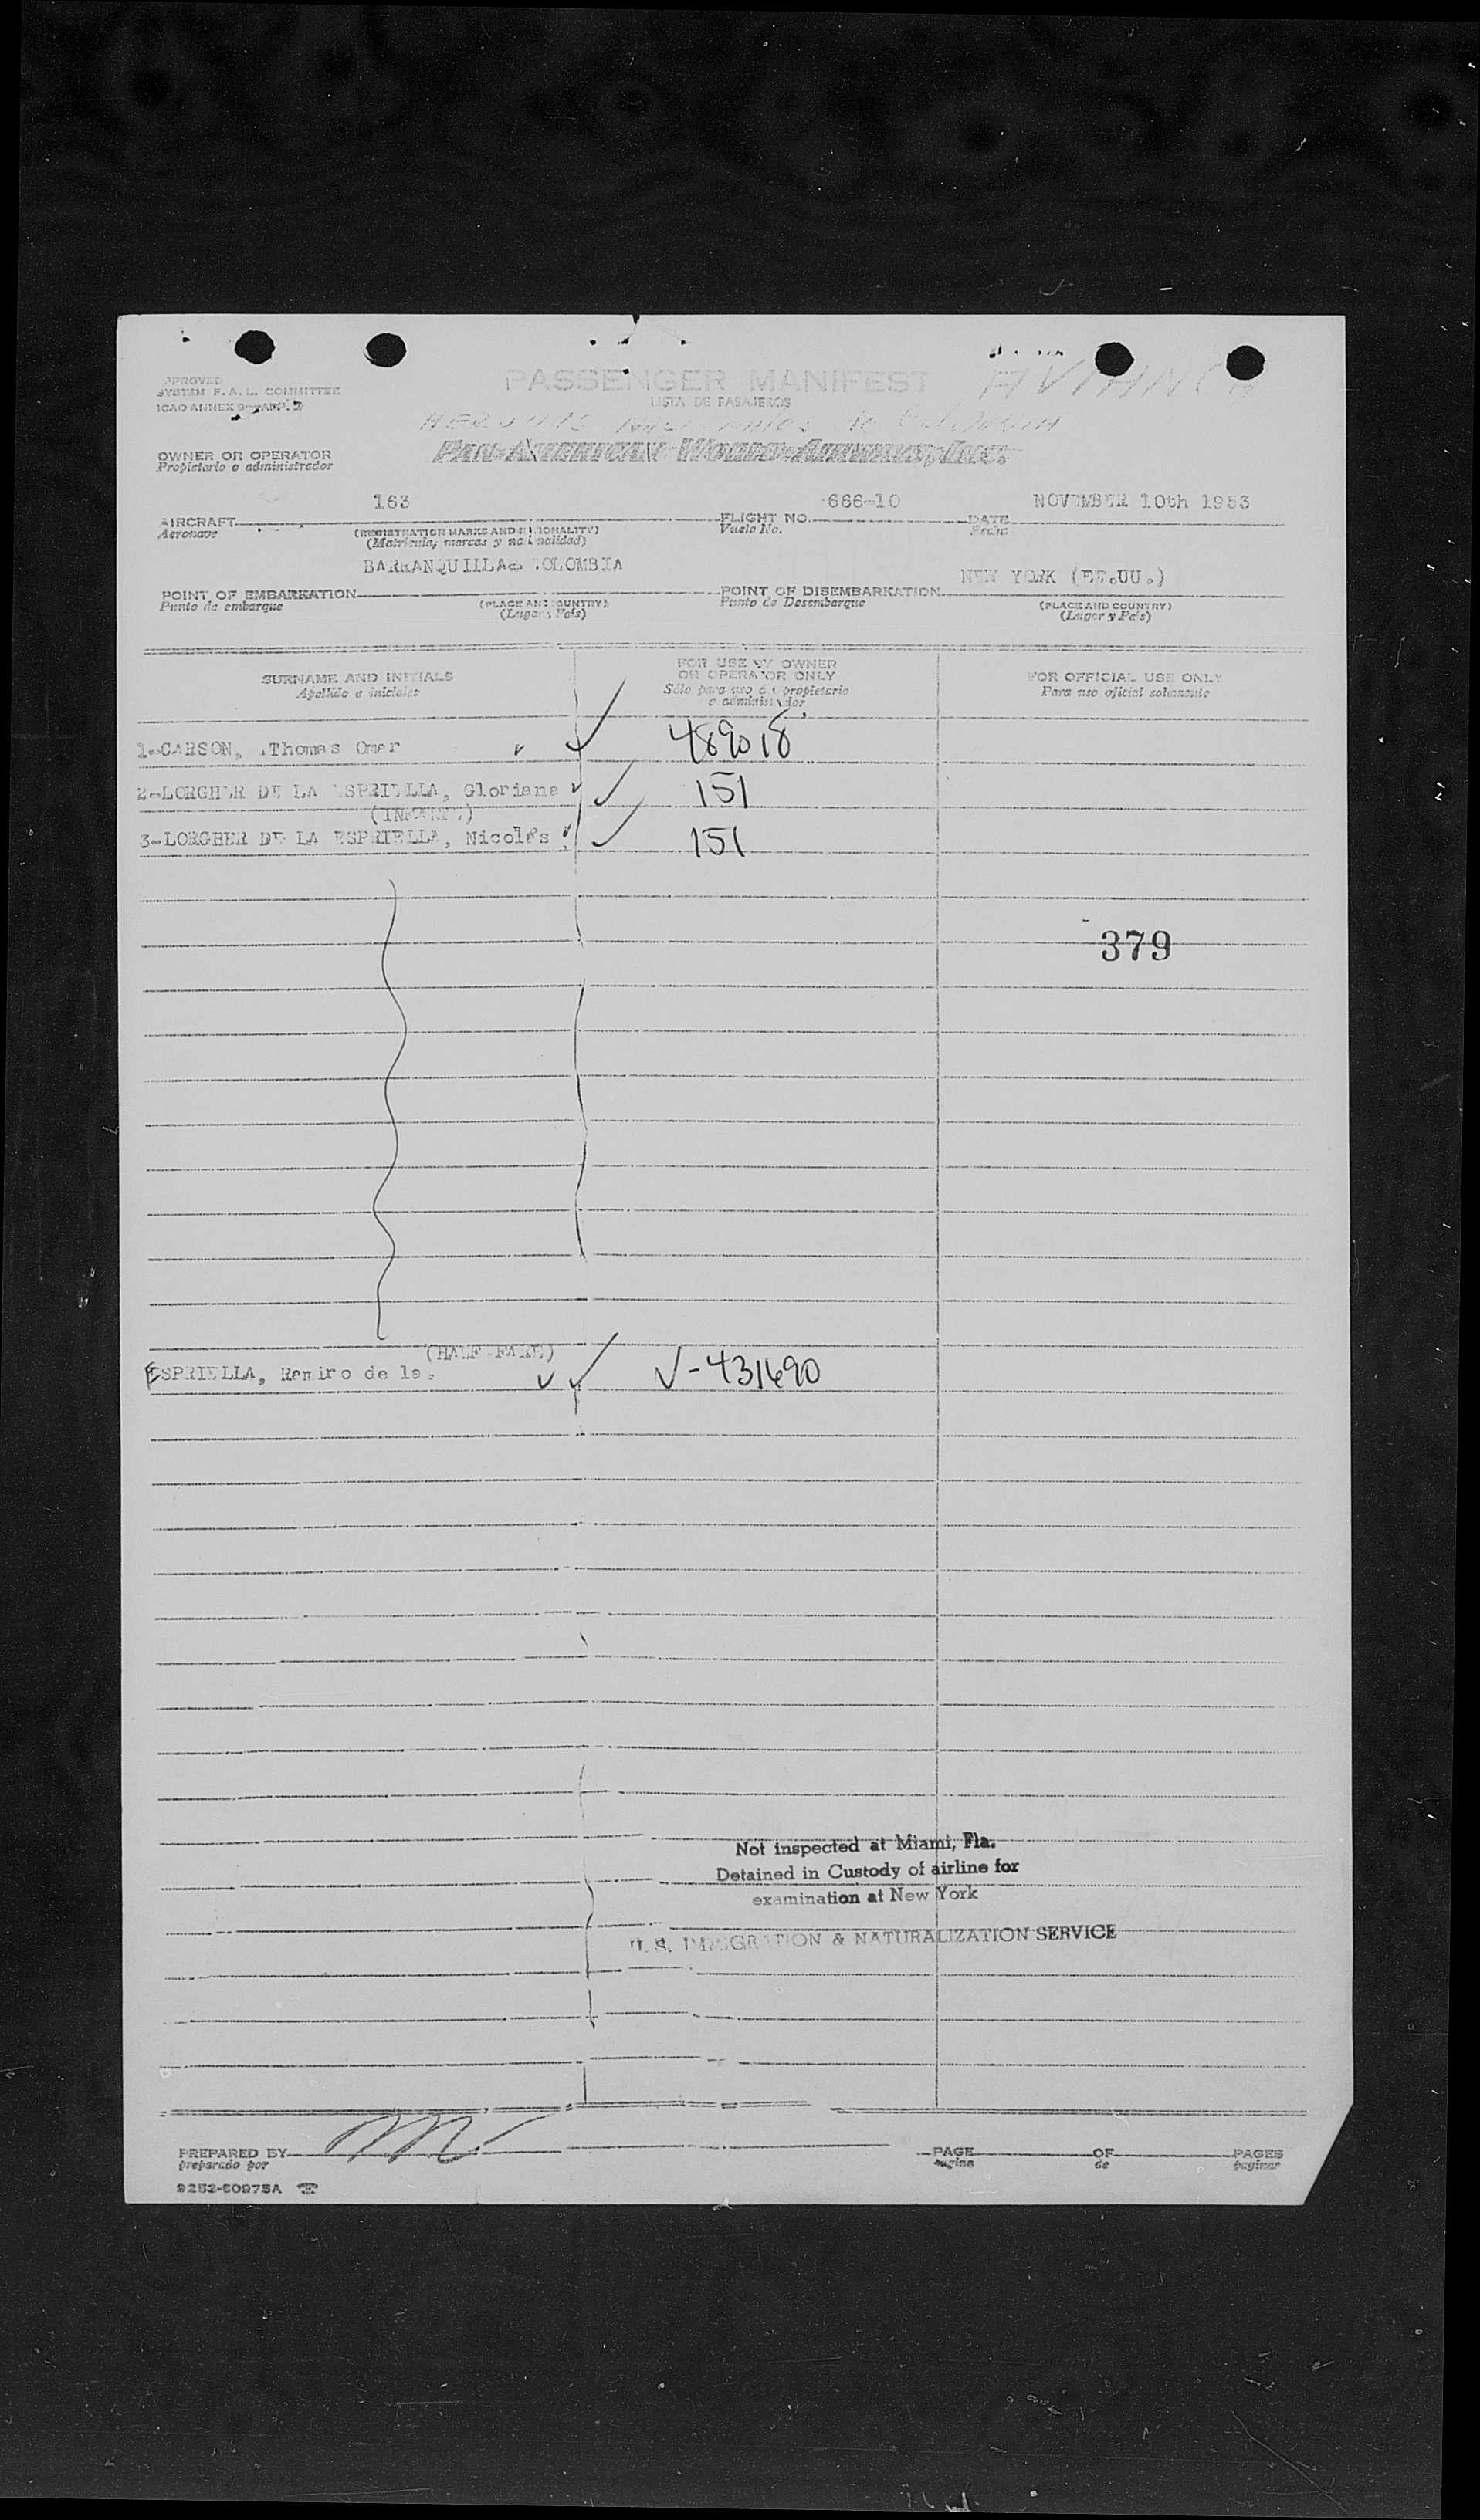 APPROVED
SYSTEM F.A.L. COMMITTEE
ICAO ANNEX 9
PASSENGER MANIFEST
LISTA DE PASAJEROS
AVIANCA
de Colombia
OWNER OR OPERATOR
Propietario o administrador
PAN AMERICAN WORLD AIRWAYS, INC.
163 666-10 NOVEMBER 10th 1953
AIRCRAFT FLIGHT NO. DATE
Aeronave (REGISTRATION MARKS AND NATIONALITY) Vuelo No. Fecha
(Matrícula, marcas y nacionalidad)
BARRANQUILLA COLOMBIA NEW YORK (EE.UU.)
POINT OF EMBARKATION POINT OF DISEMBARKATION
Punto de embarque (PLACE AND COUNTRY) Punto de Desembarque (PLACE AND COUNTRY)
(Lugar y País) (Lugar y País)
SURNAME AND INITIALS FOR USE BY OWNER OR OPERATOR ONLY FOR OFFICIAL USE ONLY
Apellido e iniciales Sólo para uso del propietario o administrador Para uso oficial solamente
1-CARSON, Thomas Omar 489018
2-LORGHER DE LA ESPRIELLA, Gloriana 151
(INFANTE)
3-LORGHER DE LA ESPRIELLA, Nicolás 151
379
(HALF FARE)
ESPRIELLA, Ramiro de la. V-431690
Not inspected at Miami, Fla.
Detained in Custody of airline for
examination at New York
U. S. IMMIGRATION & NATURALIZATION SERVICE
PREPARED BY PAGE OF PAGES
preparado por pagina de paginas
9252-60975A